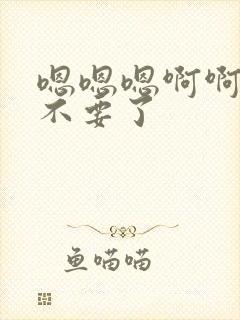 嗯嗯嗯啊啊
不要了
鱼喵喵